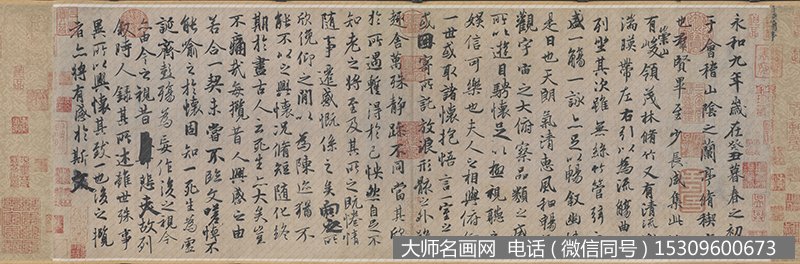 永和九年歲在癸丑暮春之初
于會稽山陰之蘭亭脩稧
也羣賢畢至少長咸集此
有崇山峻領茂林脩竹又有清流
湍暎帶左右引以為流觴曲
列坐其次雖無絲竹管弦
盛一觴一詠亦足以暢敘幽
是日也天朗氣清惠風和暢
觀宇宙之大俯察品類之盛
所以遊目騁懷足以極視聽之
娛信可樂也夫人之相與俯
一世或取諸懷抱悟言一室之
或因寄所託放浪形骸之外
趣舍萬殊靜躁不同當其欣
於所遇暫得於己怏然自足不
知老之將至及其所之既惓情
隨事遷感慨係之矣向之所
欣俛仰之閒以為陳迹猶不
能不以之興懷況脩短隨化終
期於盡古人云死生亦大矣豈
不痛哉每攬昔人興感之由
若合一契未嘗不臨文嗟悼不
能喻之於懷固知一死生為虛
誕齊彭殤為妄作後之視今
亦由今之視昔悲夫故列
敘時人錄其所述雖世殊事
異所以興懷其致一也後之攬
者亦將有感於斯文
大师名画网 电话（微信同号）15309600673